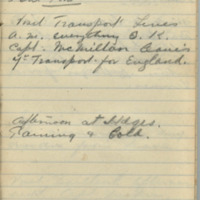 Visit Transport Lines
A.M. everything O.K.
Capt. McMillan leaves
Transport for England.
Afternoon at Hdqrs.
Raining & Cold.